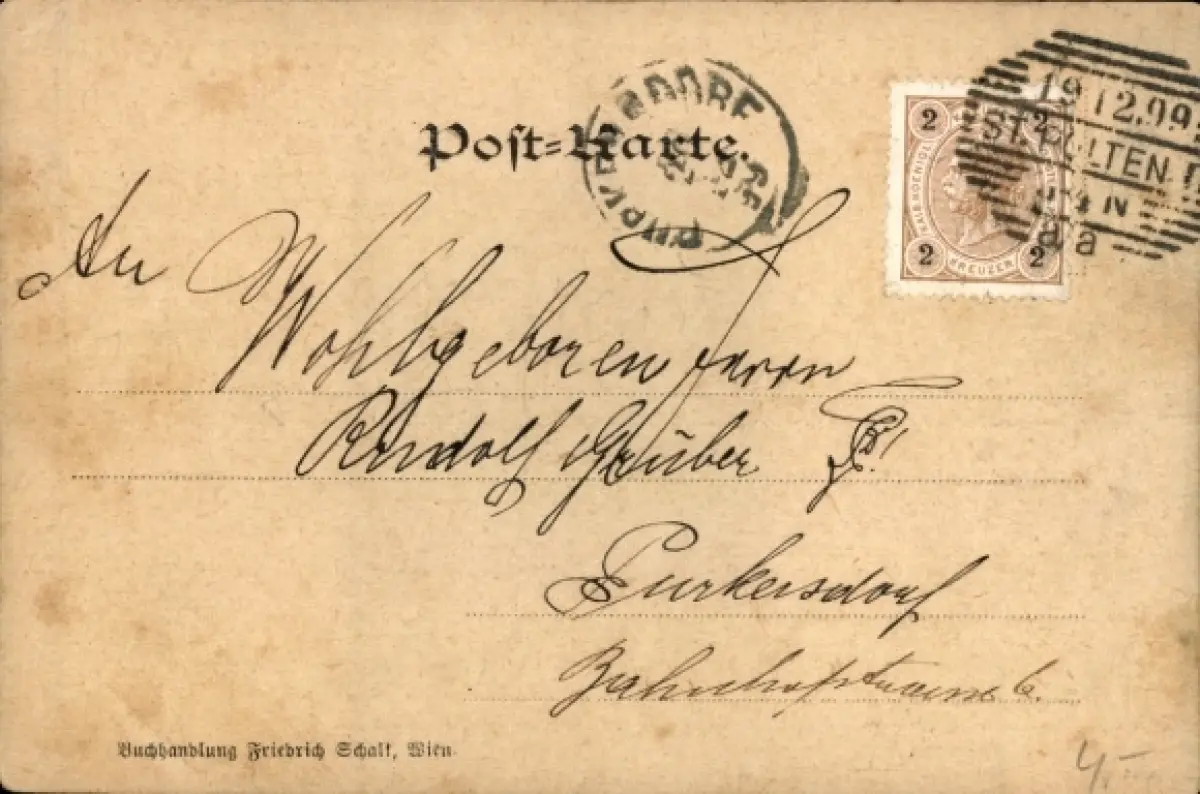 Post-Karte.
PURKERSDORF
2 2
KAIS. KOENIGL.
2 KREUZER 2
19 12.99
ST. PÖLTEN
An
Wohlgeboren Herrn
Rudolf Gruber
Purkersdorf
Bahnhofstrasse 6.
Buchhandlung Friedrich Schalk, Wien
4.-